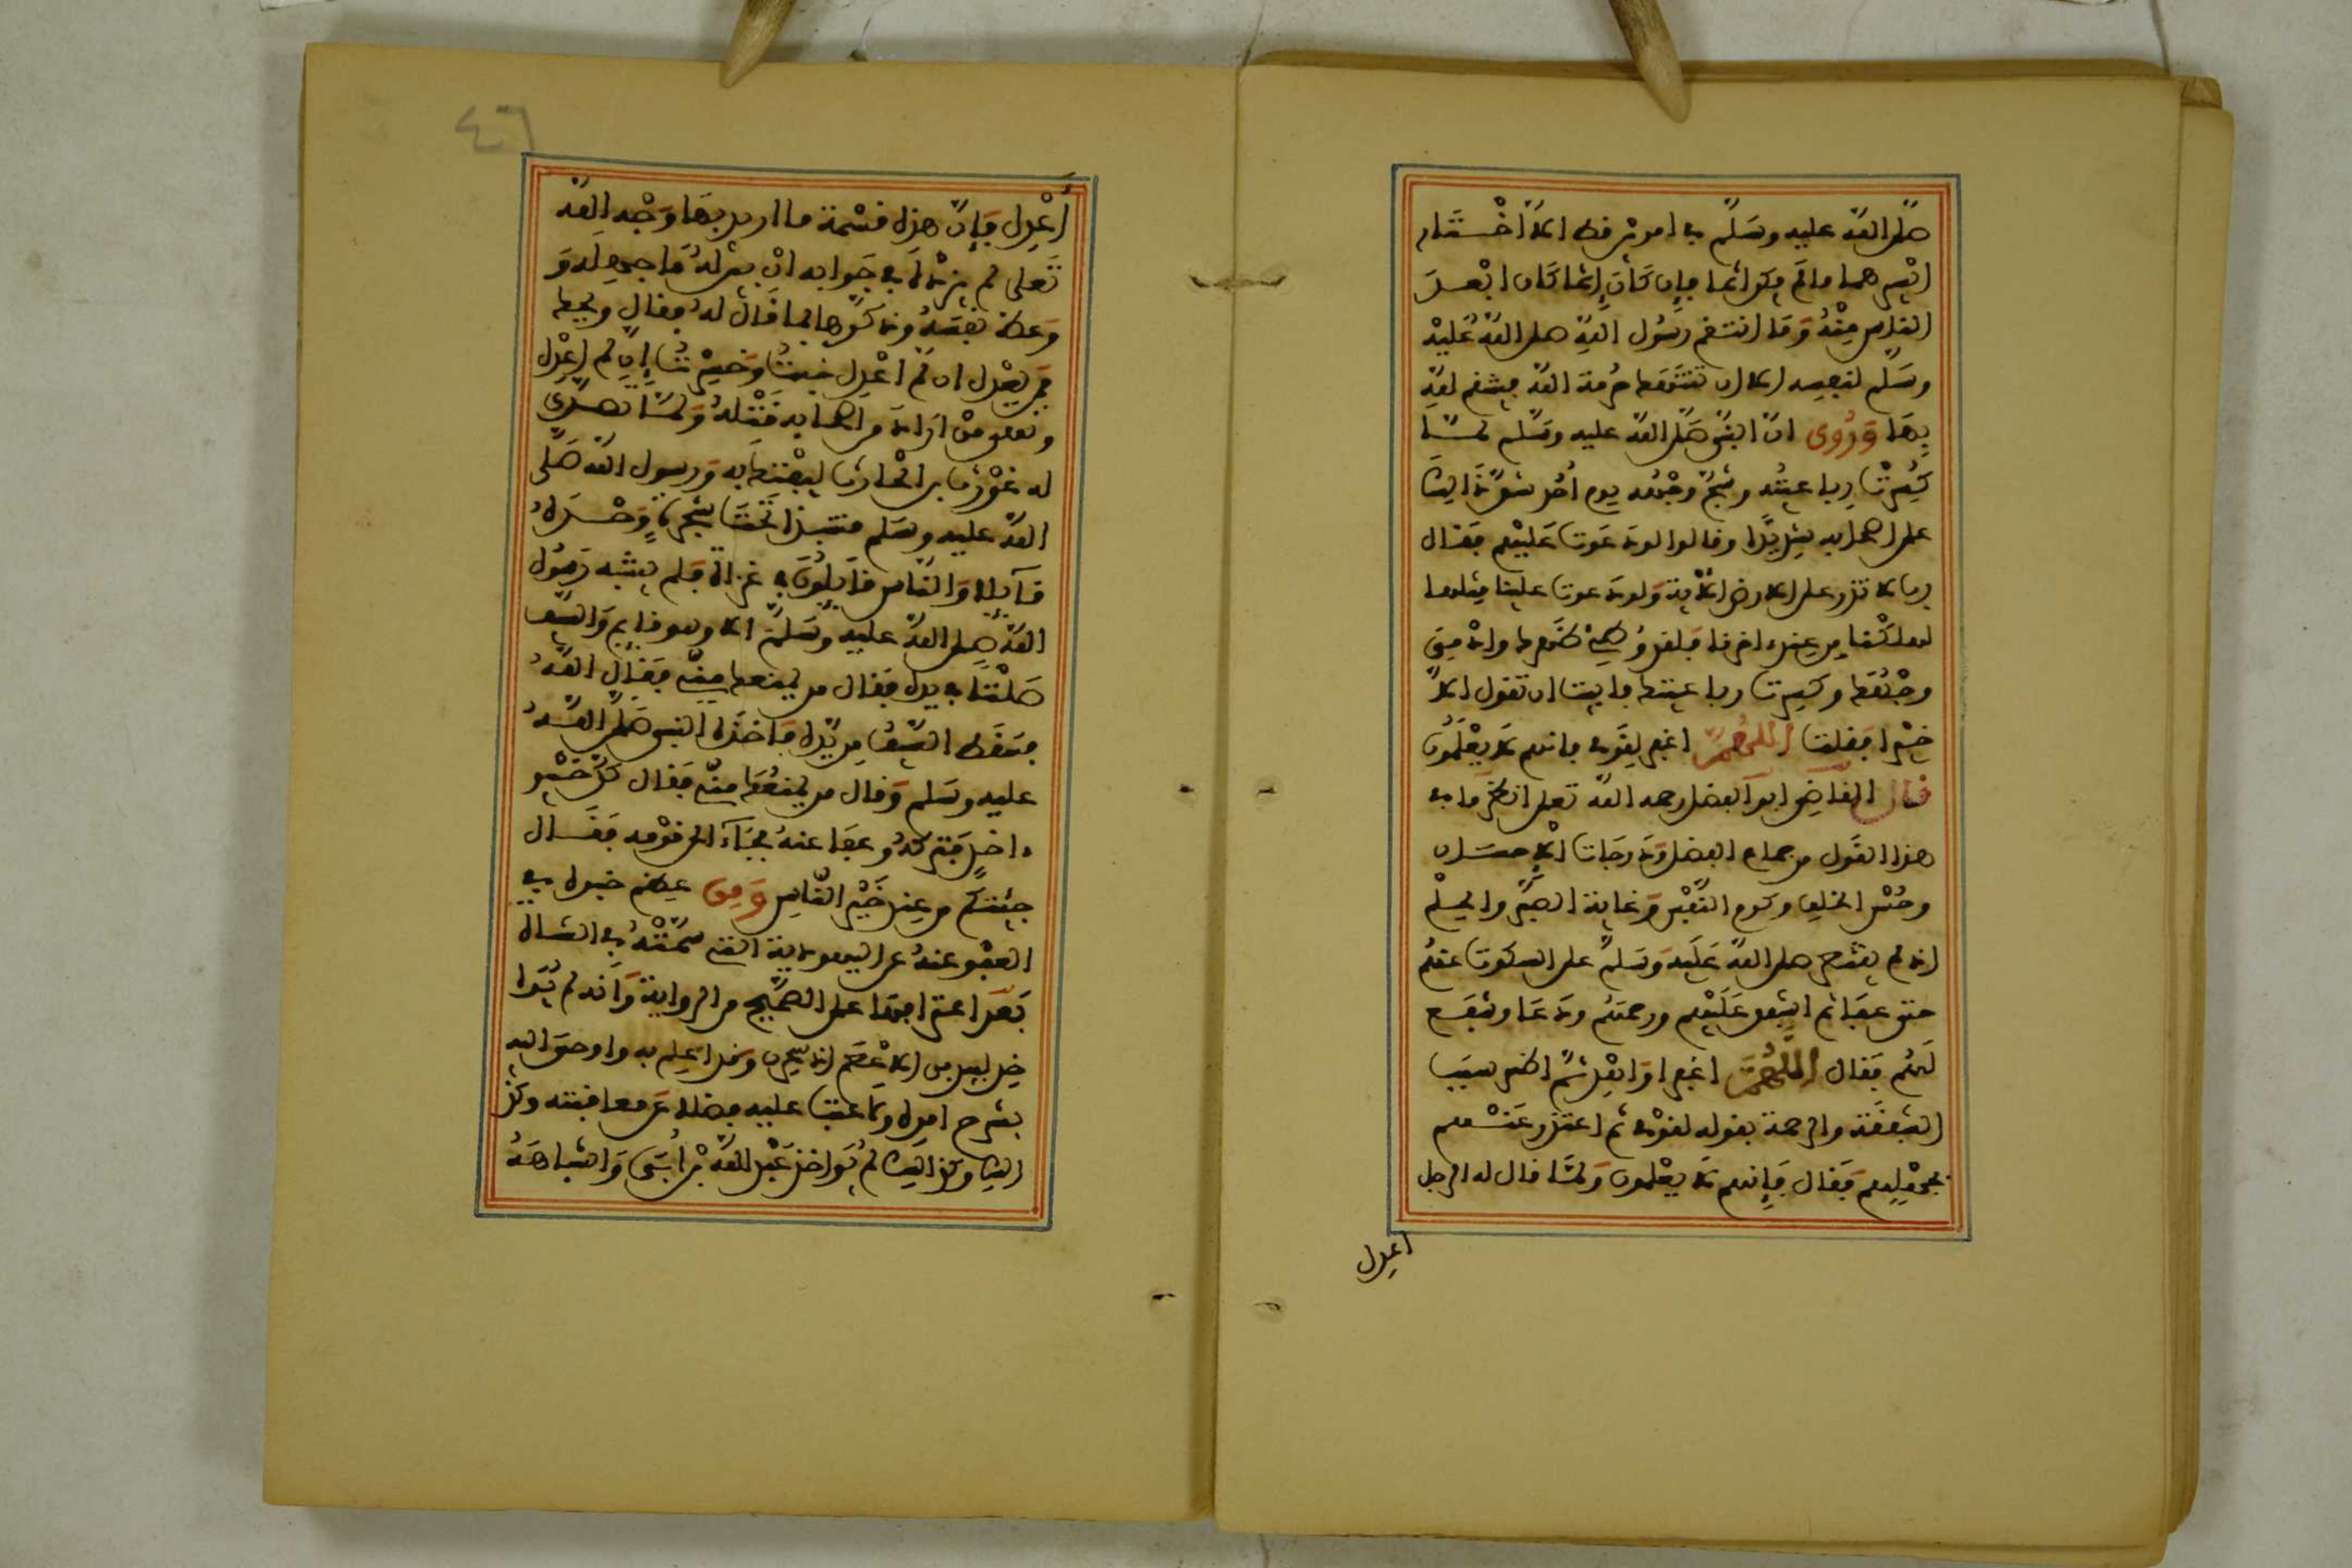 صلى الله عليه وسلم في امرين قط الا اختار
ايسرهما ما لم يكن اثما فإن كان إثما كان ابعد
الناس منه وما انتقم رسول الله صلى الله عليه
وسلم لنفسه الا ان تنتهك حرمة الله فينتقم لله
بها وروي ان النبي صلى الله عليه وسلم لما
كسرت رباعيته وشج وجهه يوم احد شق ذالك
على اصحابه شديدا وقالوا لو دعوت عليهم فقال
رب لا تذر على الارض الآية ولو دعوت علينا مثلها
لهلكنا من عند اخرنا فلقد وطئ ظهرك وادمي
وجهك وكسرت رباعيتك فابيت ان تقول الا
خيرا فقلت اللهم اغفر لقومي فانهم لا يعلمون
قال القاضي ابو الفضل رحمه الله تعلى انظر ما في
هذا القول من جماع الفضل ودرجات الإحسان
وحسن الخلق وكرم النفس وغاية الصبر والحلم
اذ لم يقتصر صلى الله عليه وسلم على السكوت عنهم
حتى عفا ثم اشفق عليهم ورحمهم ودعا وشفع
لهم فقال اللهم اغفر او اهد ثم اظهر سبب
الشفقة والرحمة بقوله لقومي ثم اعتذر عنهم
بجهلهم فقال فإنهم لا يعلمون ولما قال له الرجل
اعدل
٤٦
اعدل فإن هذه قسمة ما اريد بها وجه الله
تعلى لم يزده في جوابه ان بين له ما جهله و
وعظ نفسه وذكرها بما قال له فقال ويحك
فمن يعدل ان لم اعدل خبت وخسرت إن لم اعدل
ونهى من اراد من اصحابه قتله ولما تصدى
له غورث بن الحارث ليفتك به ورسول الله صلى
الله عليه وسلم منتبذ تحت شجرة وحده
قآئلا والناس قآئلون في غزاة فلم ينتبه رسول
الله صلى الله عليه وسلم الا وهو قايم والسيف
صلتا في يده فقال من يمنعك مني فقال الله
فسقط السيف من يده فاخذه النبي صلى الله
عليه وسلم وقال من يمنعك مني فقال كن خير
ءاخذ فتركه وعفا عنه فجآء الى قومه فقال
جئتكم من عند خير الناس ومن عظيم خبره في
العفو عنه عن اليهودية التي سمته في الشاة
بعد اعترافها على الصحيح من الرواية وانه لم يؤا
خذ لبيد بن الاعصم اذ سحره وقد اعلم به واوحي اليه
بشرح امره ولا عتب عليه فضلا عن معاقبته وكذ
الك وكذالك لم يؤاخذ عبد الله بن ابي واشباهه